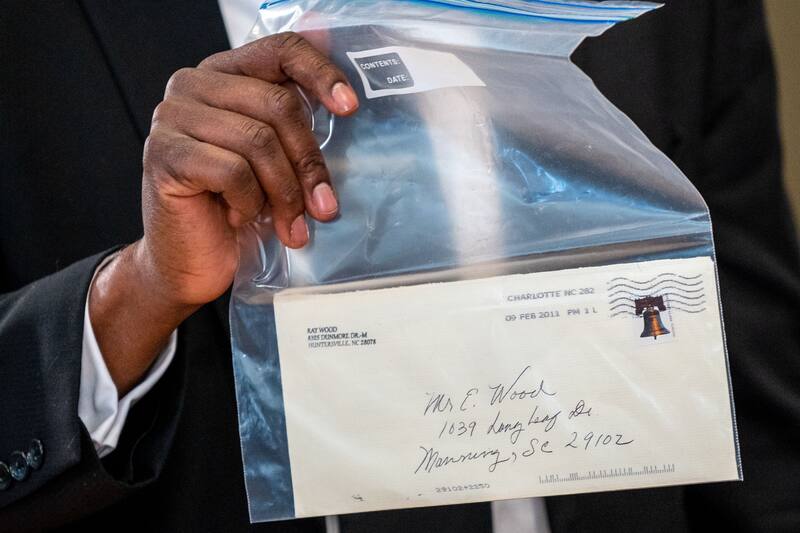 CONTENTS:
DATE:
CHARLOTTE NC 282
09 FEB 2011 PM 1 L
RAY WOOD
8105 DUNMORE DR.-M
HUNTERSVILLE, NC 28078
Mr E. Wood
1039 Long Leaf Dr
Manning, SC 29102
29102+2250